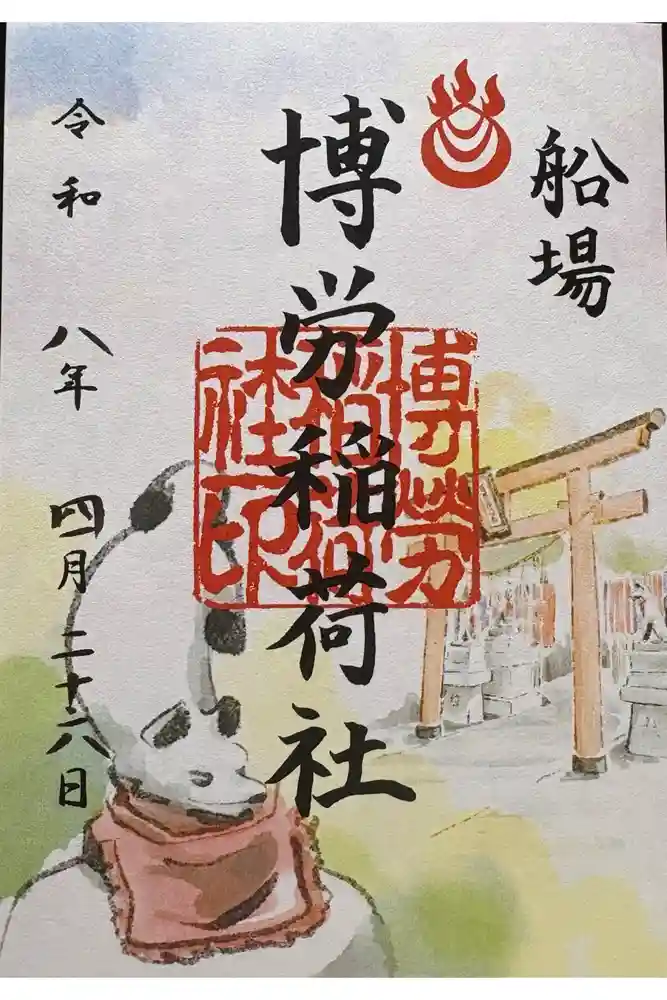 船場
博労稲荷社
博勞
稲荷
社印
令和八年四月二十六日